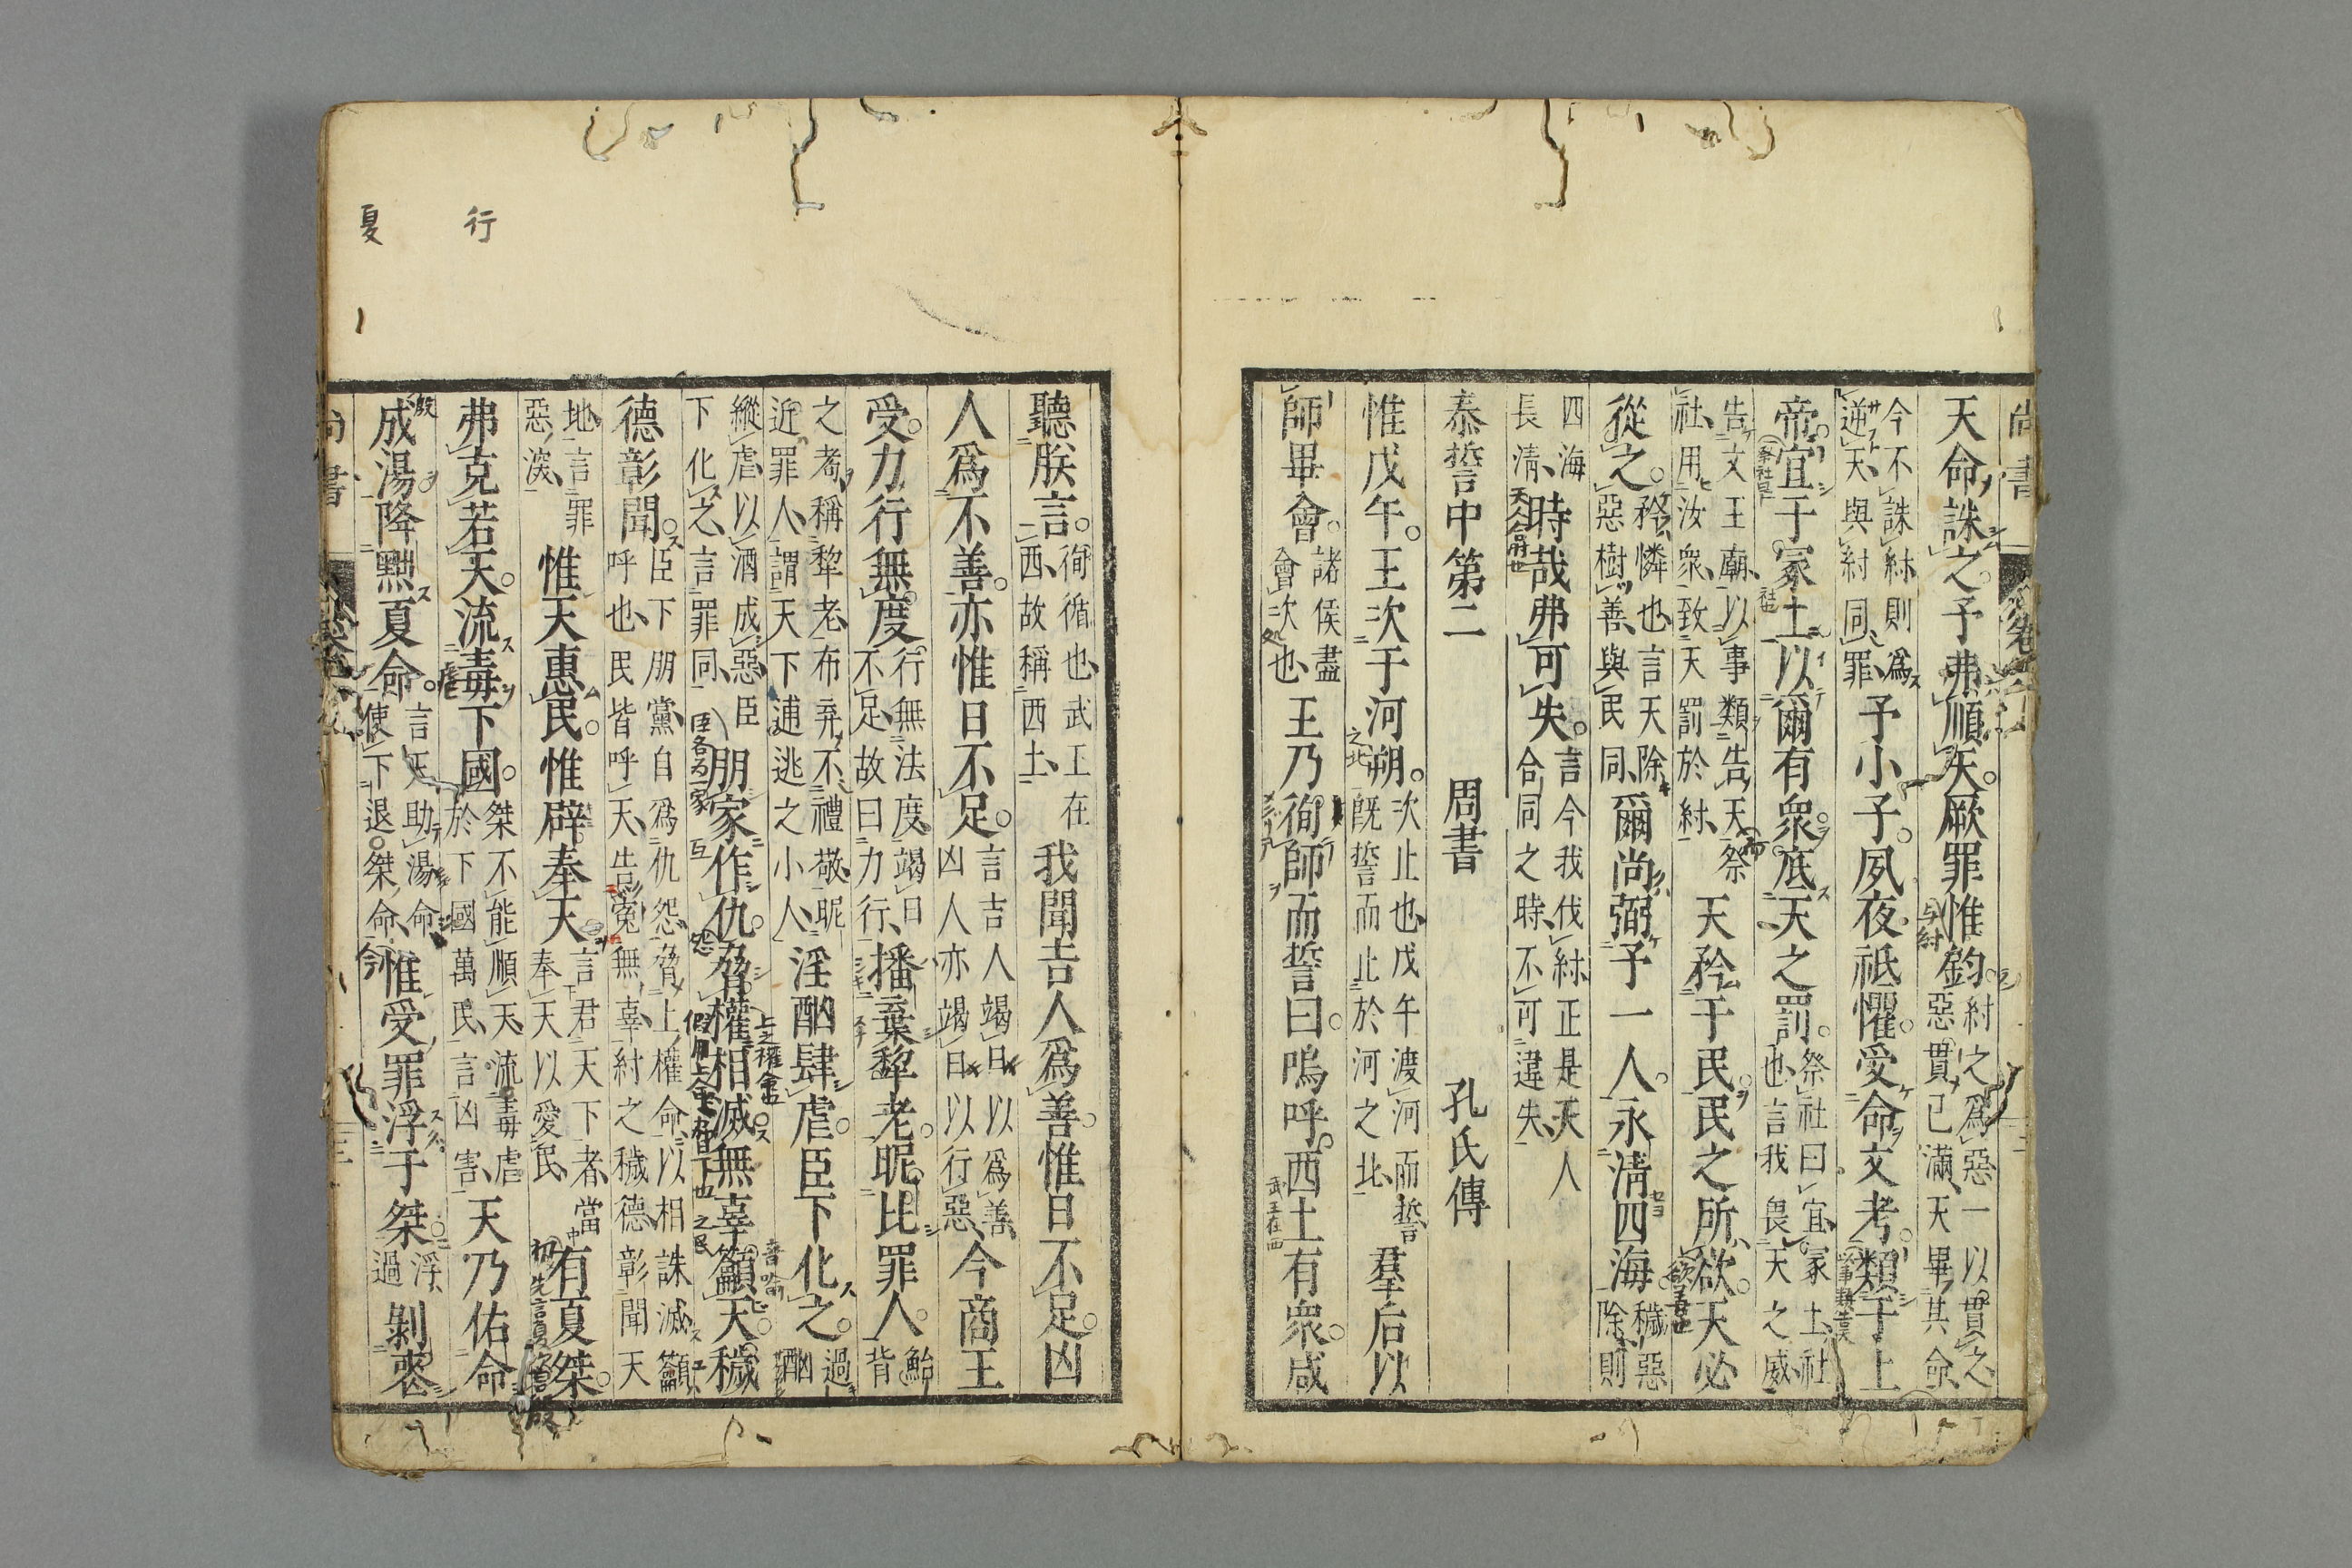 天命誅之予弗順天厥罪惟鈞紂之爲惡一以貫之惡貫已滿天畢其命
今不誅紂則爲逆天與紂同罪予小子夙夜祗懼受命文考類于上
帝宜于冢土以爾有衆底天之罰祭社曰宜冢土社也言我畏天之威
告文王廟以事類告天祭社用汝衆致天罰於紂天矜于民民之所欲天必
從之矜憐也言天除惡樹善與民同爾尚弼予一人永淸四海穢惡除則
四海長淸時哉弗可失言今我伐紂正是天人合同之時不可違失
泰誓中第二 周書 孔氏傳
惟戊午王次于河朔次止也戊午渡河而誓旣誓而止於河之北羣后以
師畢會諸侯盡會次也王乃徇師而誓曰嗚呼西土有衆咸
聽朕言徇循也武王在西故稱西土我聞吉人爲善惟日不足凶
人爲不善亦惟日不足言吉人竭日以爲善凶人亦竭日以行惡今商王
受力行無度行無法度竭日不足故曰力行播棄犂老昵比罪人鮐背
之耇稱犂老布棄不禮敬昵近罪人謂天下逋逃之小人淫酗肆虐臣下化之過酗
縱虐以酒成惡臣下化之言罪同朋家作仇脅權相滅無辜籲天穢
德彰聞臣下朋黨自爲仇怨脅上權命以相誅滅籲呼也民皆呼天告冤無辜紂之穢德彰聞天
地言罪惡深惟天惠民惟辟奉天言君天下者當奉天以愛民有夏桀
弗克若天流毒下國桀不能順天流毒虐於下國萬民言凶害天乃佑命
成湯降黜夏命言天助湯命使下退桀命惟受罪浮于桀浮過剝喪
行
夏